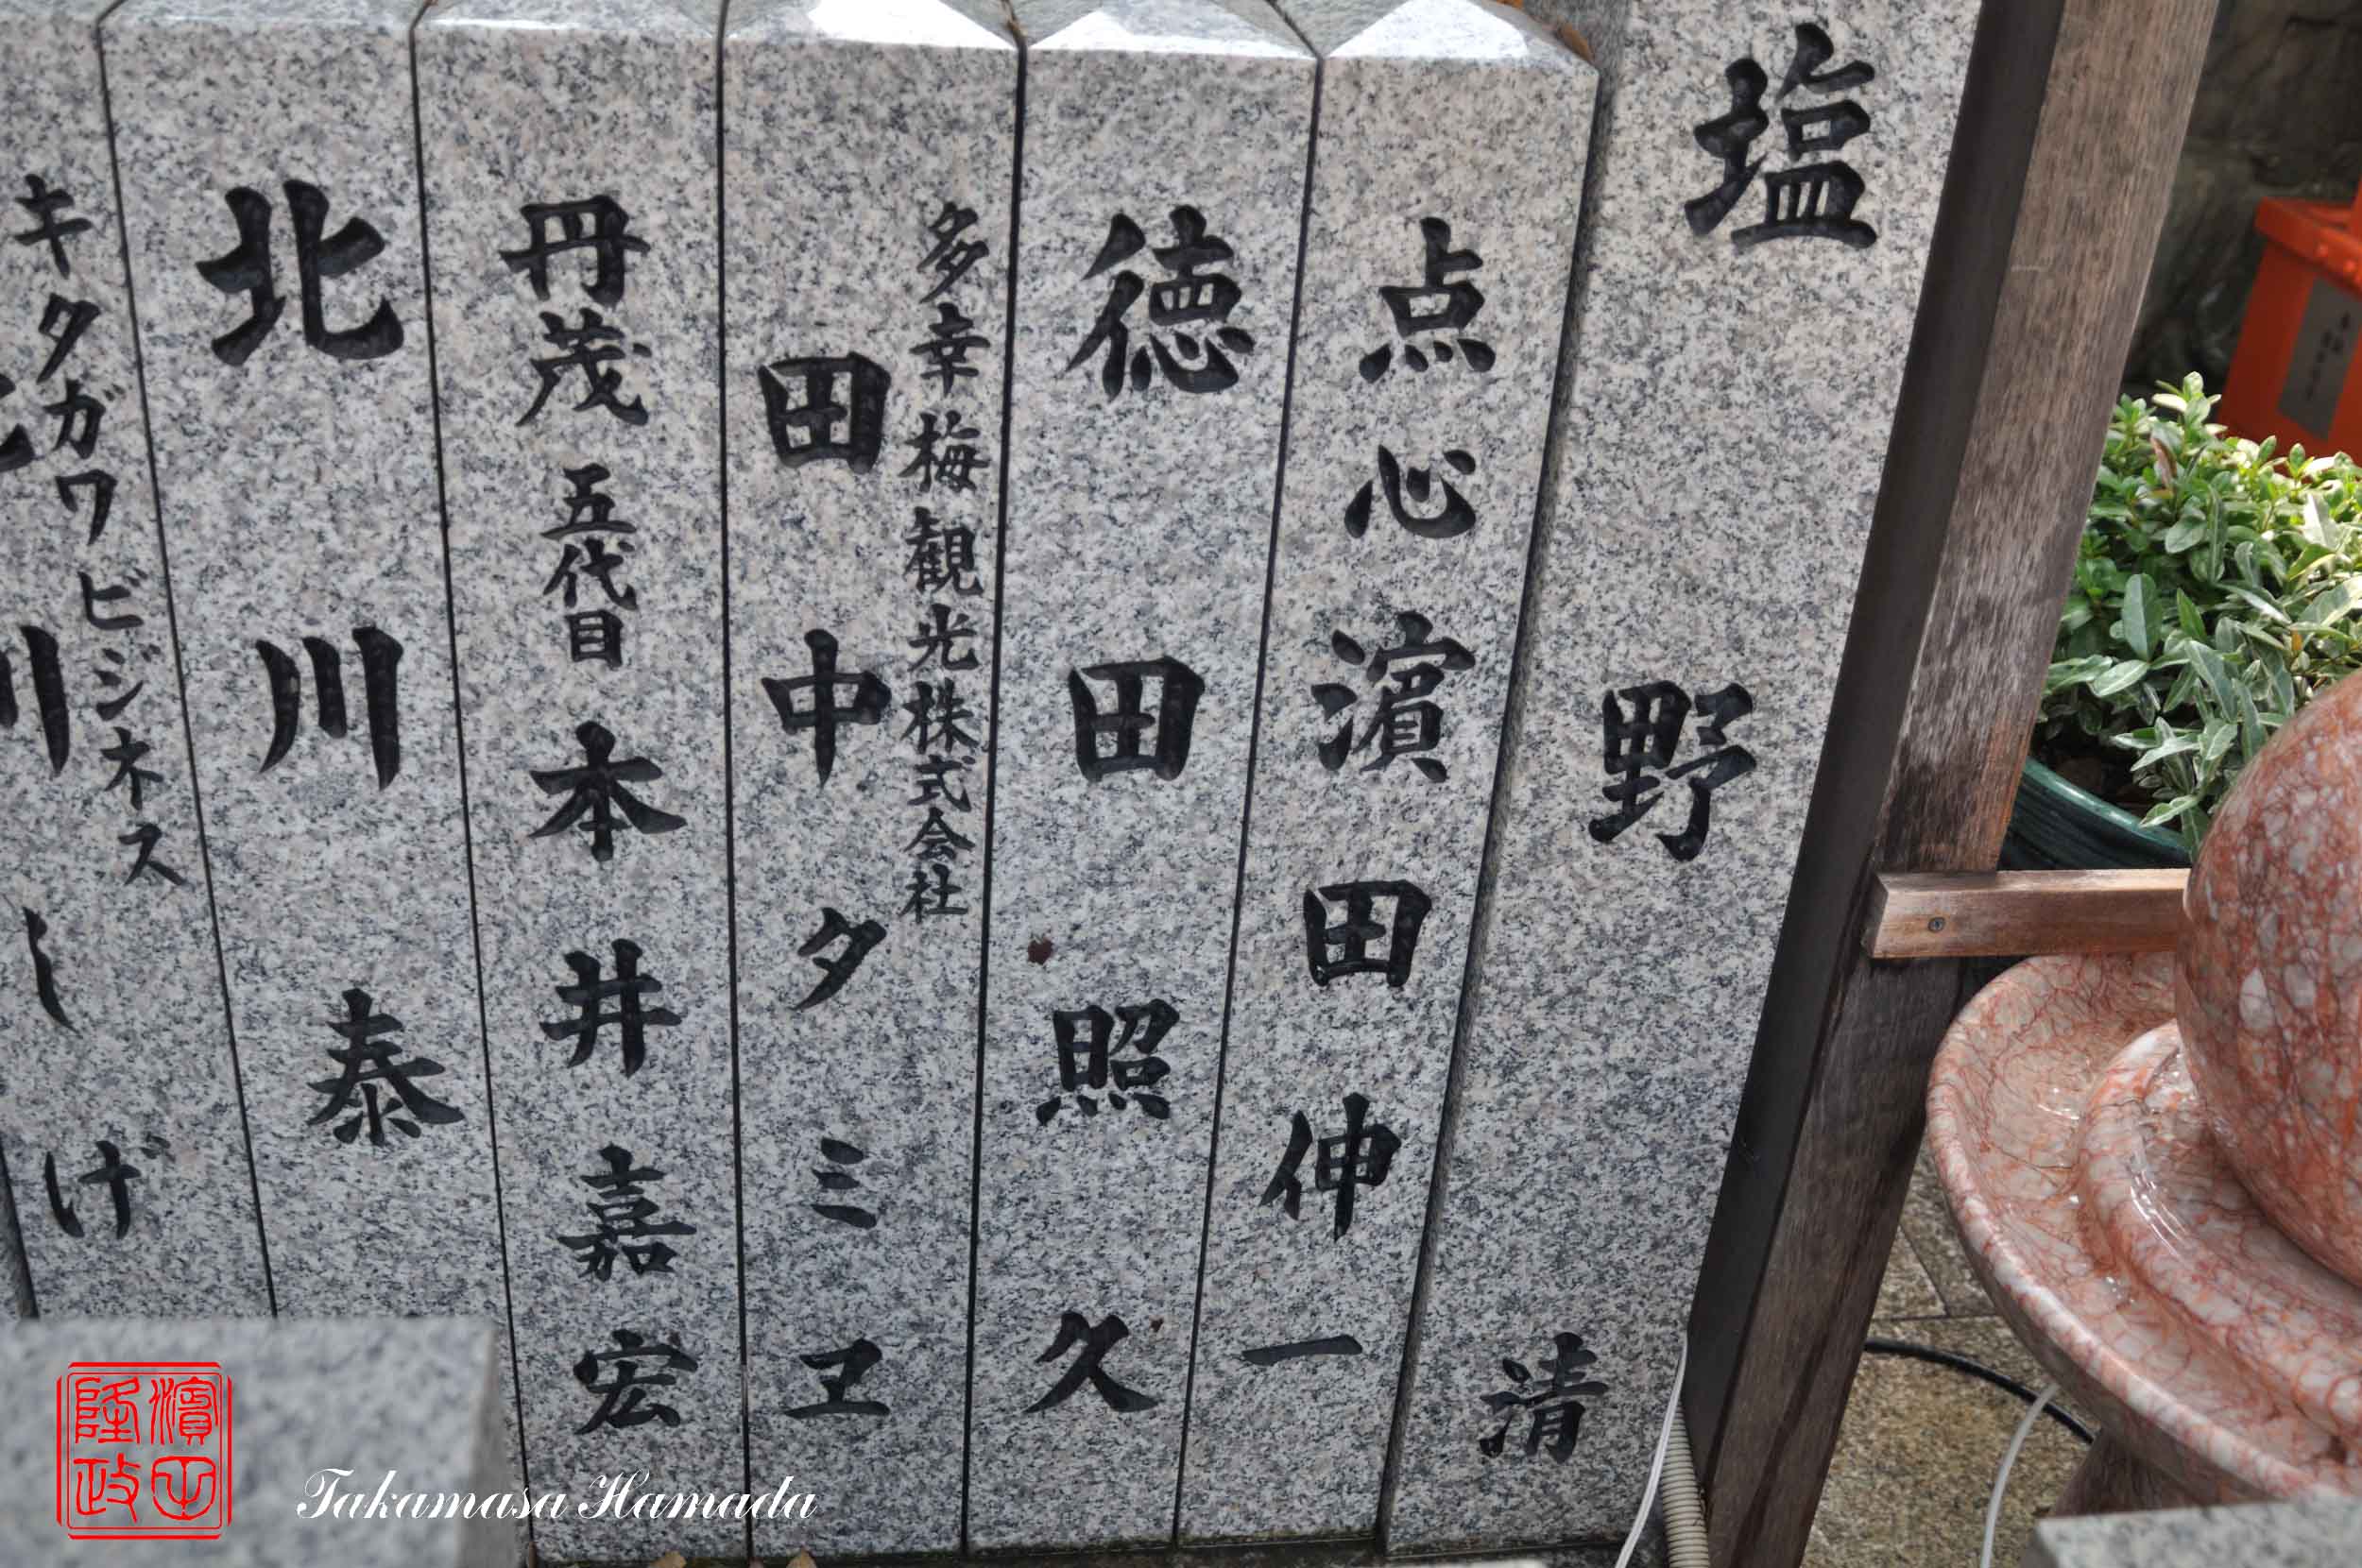 塩野清
点心濱田伸一
徳田照久
多幸梅観光株式会社
田中タミヱ
丹茂五代目本井嘉宏
北川泰
キタガワビジネス
川しげ
濱田
隆政
Takamasa Hamada